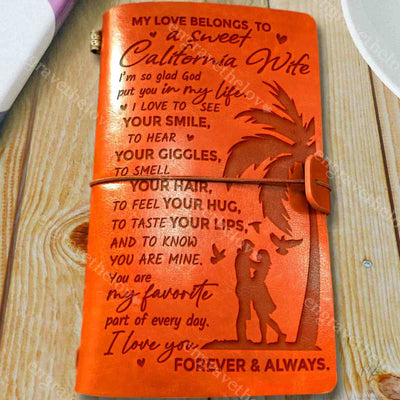 MY LOVE BELONGS TO
a sweet
California Wife
I'm so glad God
put you in my life.
I LOVE TO SEE
YOUR SMILE,
TO HEAR
YOUR GIGGLES,
TO SMELL
YOUR HAIR,
TO FEEL YOUR HUG,
TO TASTE YOUR LIPS,
AND TO KNOW
YOU ARE MINE.
You are
my favorite
part of every day.
I love you
FOREVER & ALWAYS.
engravethelove
engravethelove
engravethelove
engravethelove